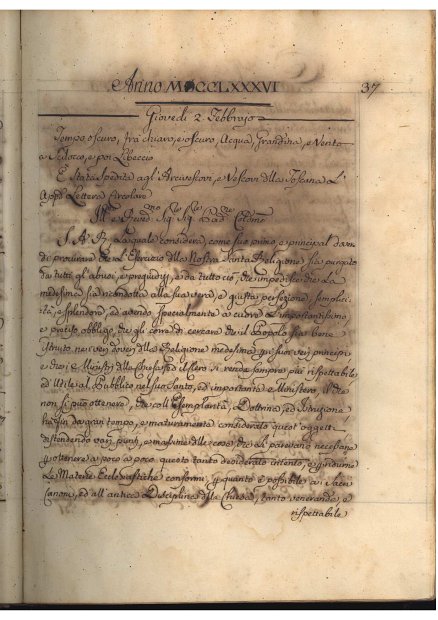 Anno MDCCLXXXVI 37
Giovedì 2. Febbrajo
Tempo oscuro, frà chiaro, e oscuro, Acqua, Grandina, e Vento
a Scilocco, e poi Libeccio
È stata spedita agl' Arcivescovi, e Vescovi della Toscana L'
App.ª Lettera Circolare
Ill.mo e Rev.mo Sig.re Sig.re P.ron Col.mo
S. A. R. La quale considera, come suo primo, e principal
di procurare che L'Esercizio della Nostra Santa Religione sia purgato
da tutti gl'abusi, e pregiudizj, e da tutto ciò, che impedisce che La
medesima sia ricondotta alla sua vera, e giusta perfezione, semplici
tà, e splendore, ed avendo specialmente a cuore L'importantissimo
e preciso obbligo, che gli corre di cercare che il Popolo sia bene
istruito nei veri doveri della Religione medesima, nei suoi veri principj
e che i Ministri della Chiesa, ed il Clero si renda sempre più rispettabile
ed utile al Pubblico nel suo Santo, ed importante Ministero, il che
non si può ottenere, che coll' Esemplarità, Dottrina, ed Istruzione
ha fin da gran tempo, e maturamente considerato quest' oggetto
distendendo varj punti, e massime delle cose che Le parevano necessarie
p ottenere a poco a poco questo tanto desiderato intento, e ridurre
Le Materie Ecclesiastiche conformi, p quanto è possibile ai Sacri
Canoni, ed all'antica Disciplina della Chiesa, tanto veneranda, e
rispettabile